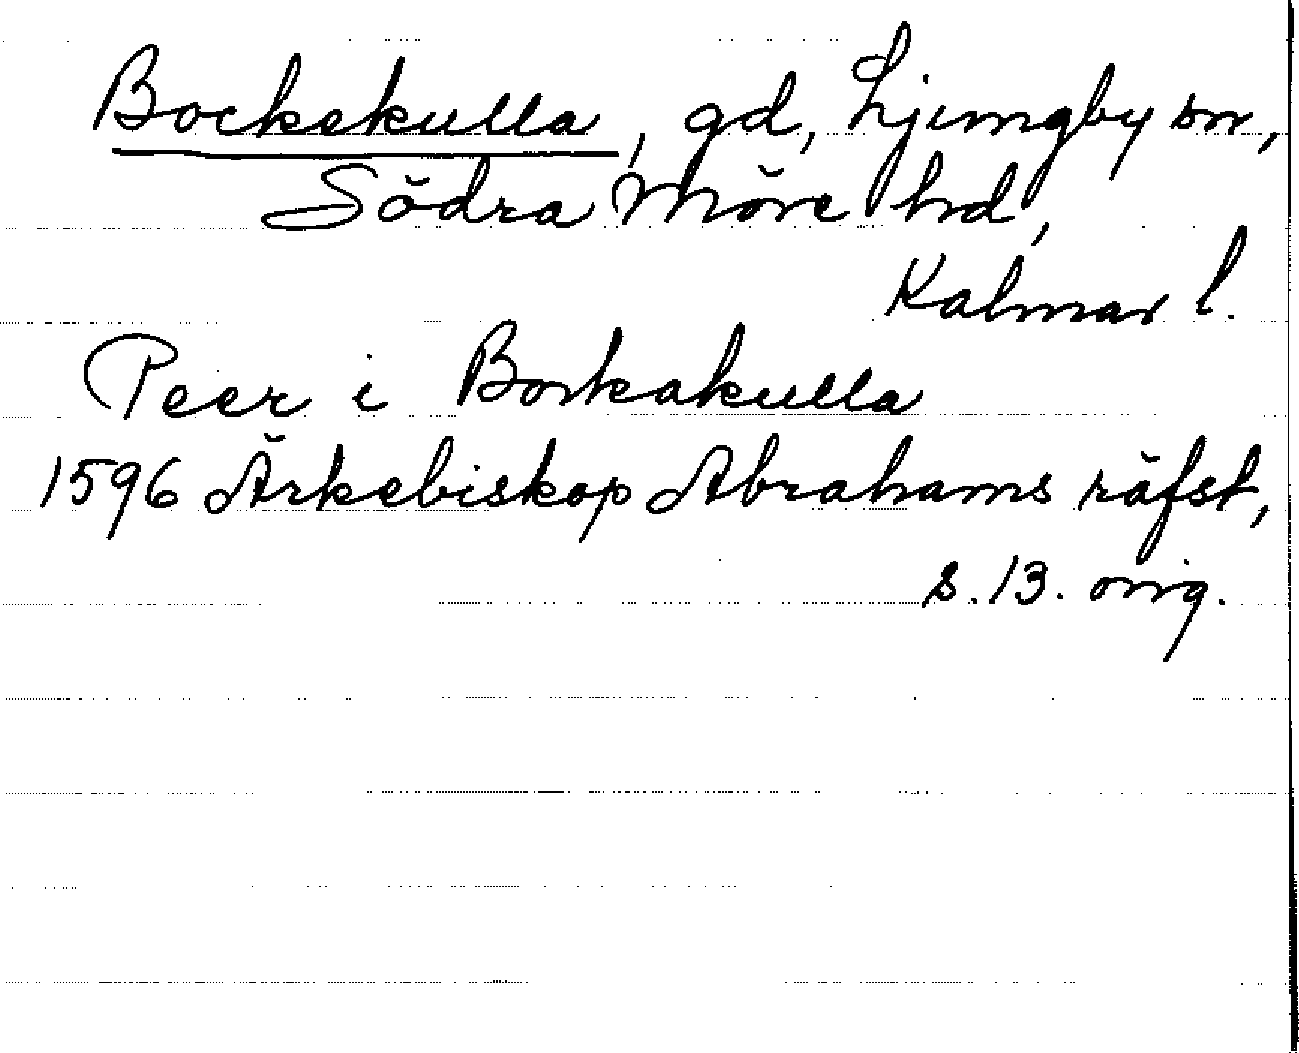 Bockekulla, gd, Ljungby sn,
Södra Möre hd,
Kalmar l.
Peer i Borkakulla
1596 Ärkebiskop Abrahams räfst,
s. 13. orig.